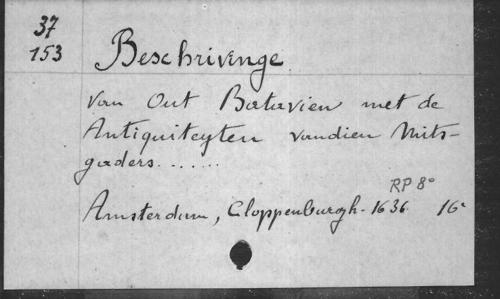 37
153
Beschrivinge
van Out Batavien met de
Antiquiteyten vandien Mits-
gaders.......
RP 8°
Amsterdam, Cloppenburgh. 1636. 16°